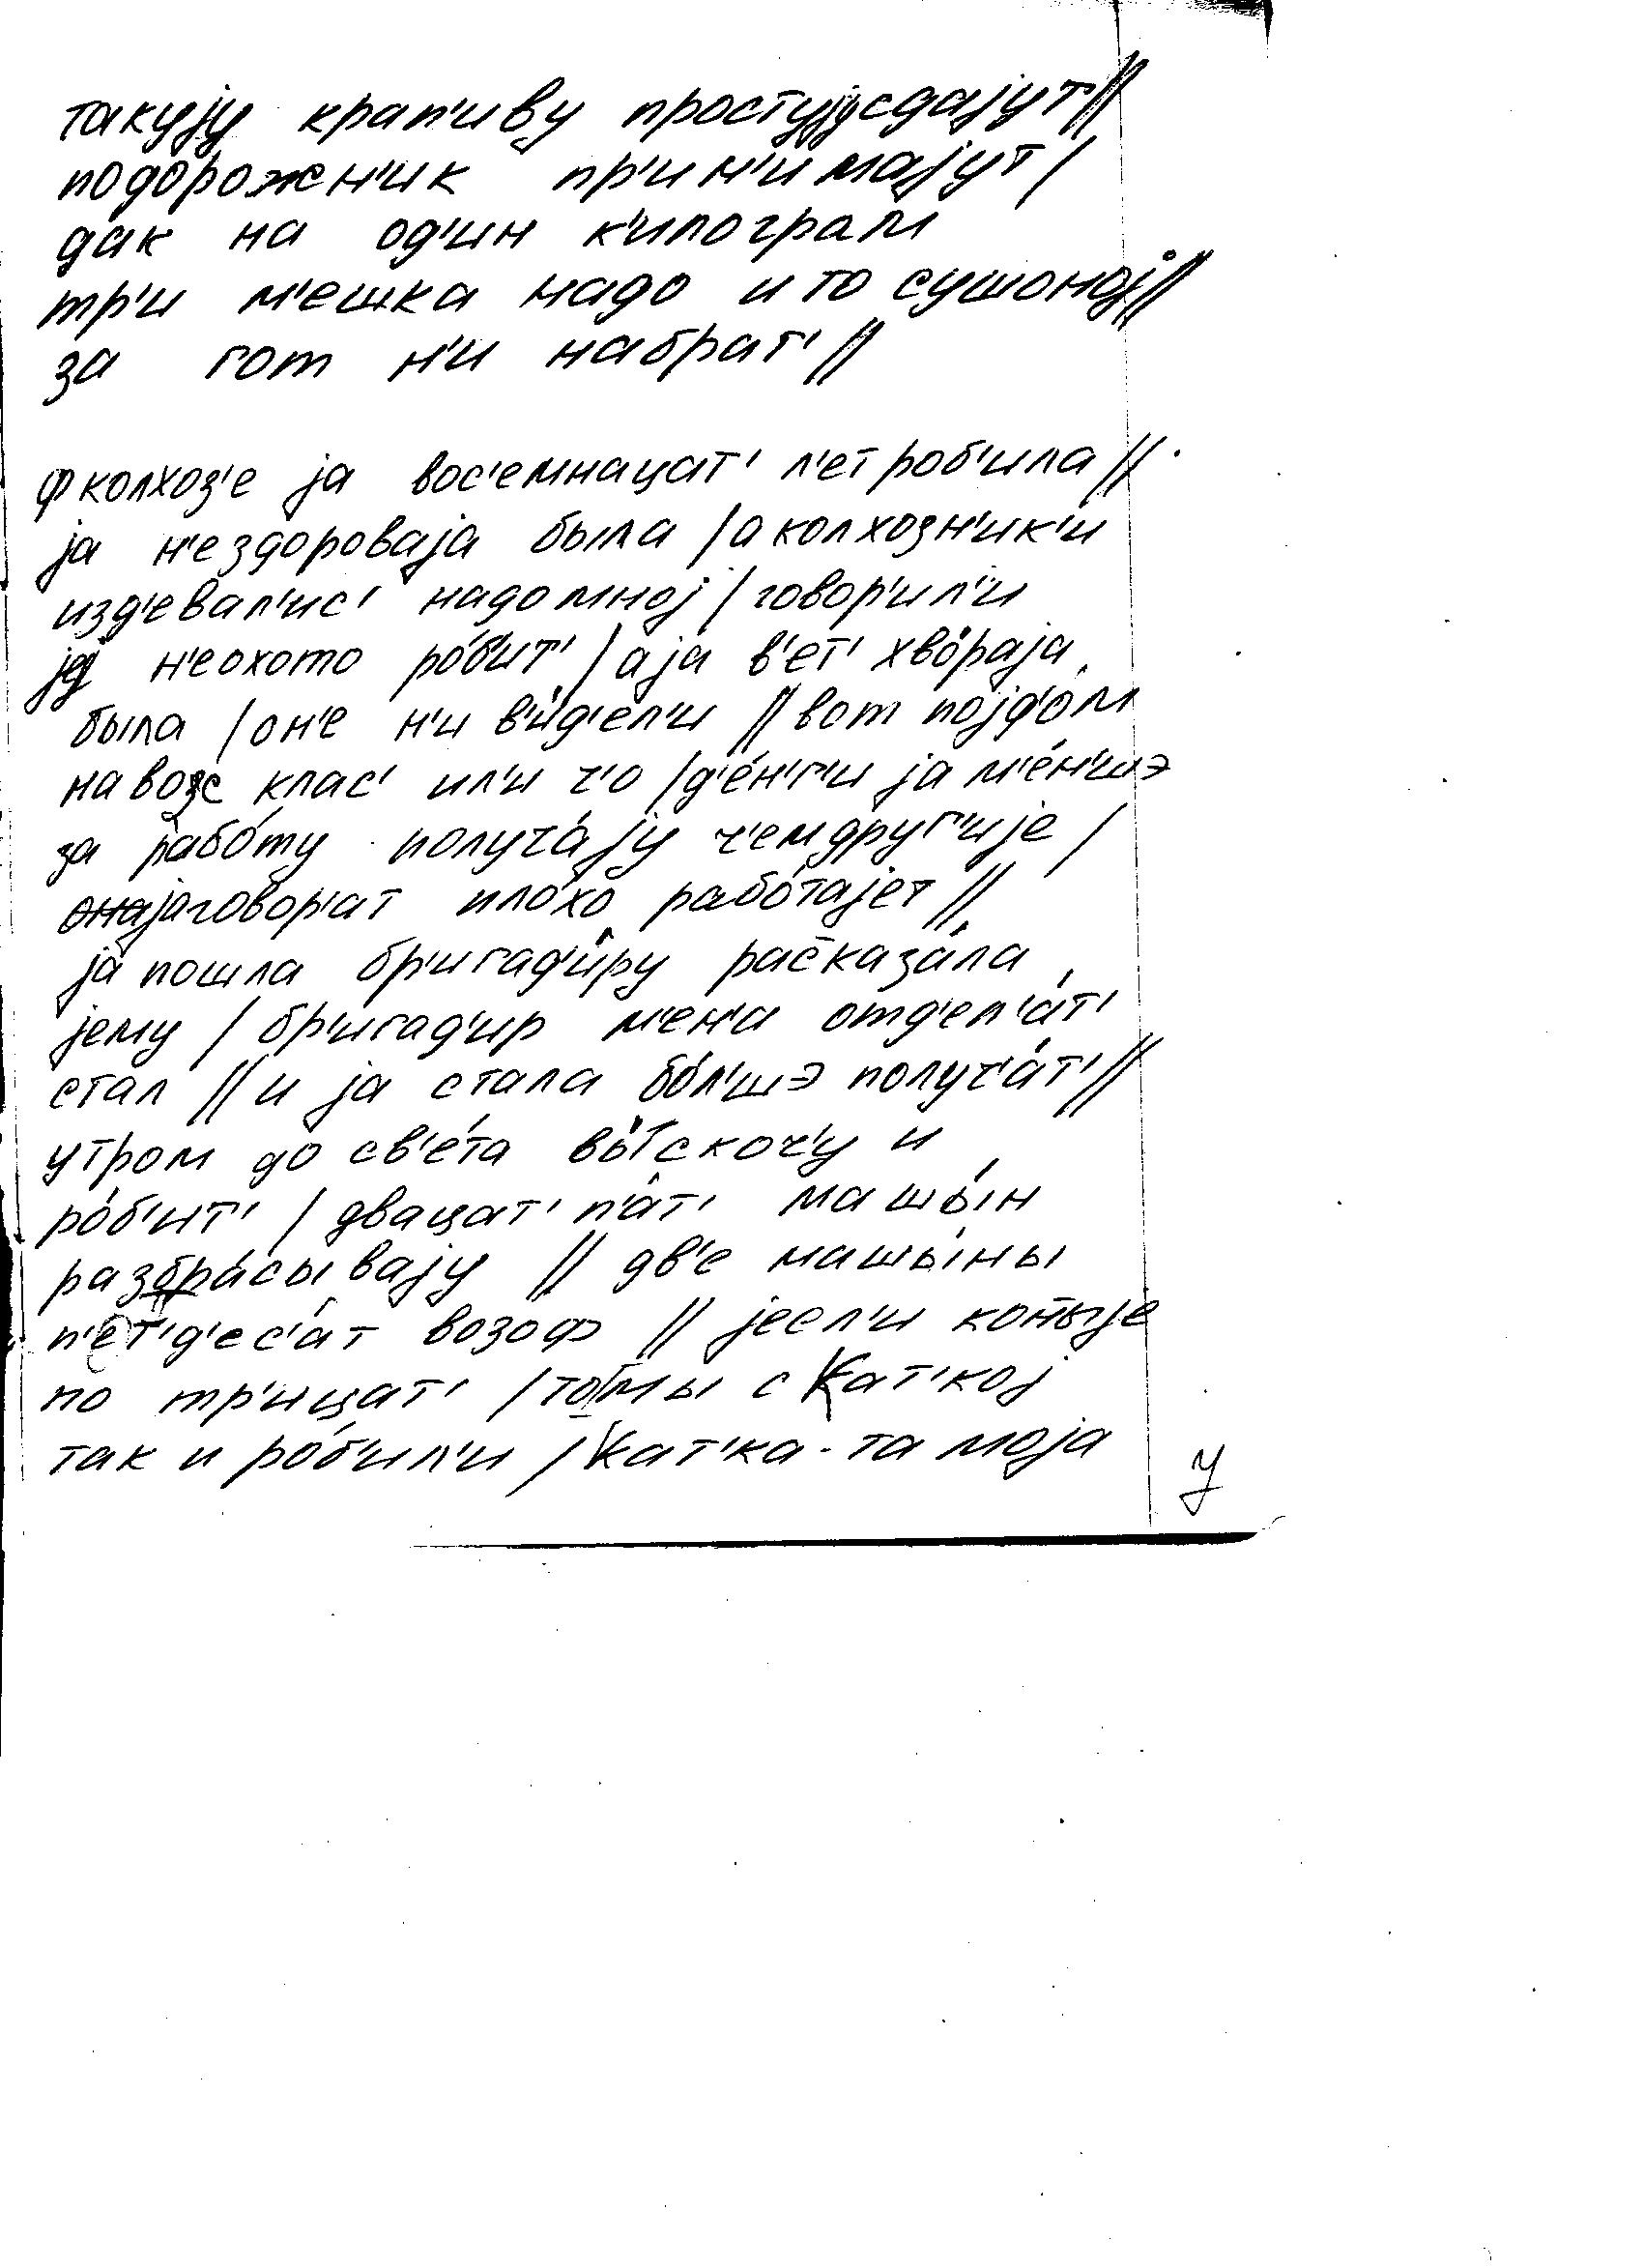 такуjу крап'иву простуjу сдаjут//
подорожн'ик пр'ин'имаjут/
дак на од'ин к'илограм
тр'и м'ешка надо и то сушоноj//
за гот н'и набрат'//
ф колхоз'е jа вос'емнацат' л'ет роб'ила//
jа н'ездороваjа была /а колхозн'ик'и
изд'евал'ис' надо мноj /говор'ил'и
н'еохото ро́б'ит' /а jа в'ет' хво́раjа
была /он'е н'и в'и́д'ел'и //вот поjд'о́м
на воз клас' ил'и ч'о /д'е́н'г'и jа м'е́н'шэ
за рабо́ту получ'а́jу ч'ем друг'иjе /
говор'ат пло́хо рабо́таjет //
jа пошла бр'игад'и́ру расказа́ла
jему /бр'игад'ир м'ен'а отд'ел'а́т'
стал //и jа стала бо́л'шэ получ'а́т'//
утром до св'е́та вы́скоч'у и
ро́б'ит' /двацат' п'ат' машы́н
разбра́сываjу //дв'е машы́ны
п'ет'д'ес'а́т возоф //jесл'и
по тр'ицат' /то мы с Кат'коj
так и ро́б'ил'и /Кат'ка-та моjа
7